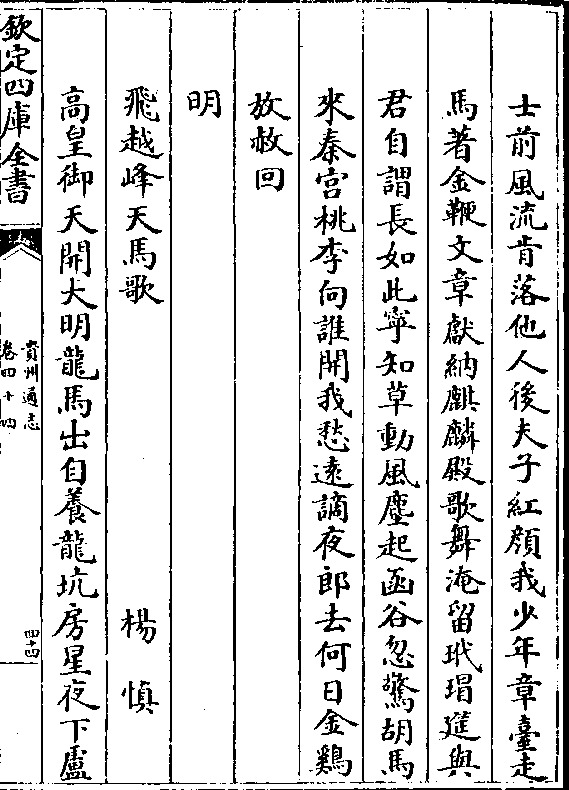 士前風流肯落他人後夫子紅顔我少年章臺走
馬著金鞭文章獻納麒麟殿歌舞淹留玳瑁筵與
君自謂長如此寧知草動風塵起函谷忽驚胡馬
來秦宮桃李向誰開我愁遠謫夜郎去何日金鷄
放赦回
明
飛越峰天馬歌 楊慎
高皇御天開大明龍馬出自養龍坑房星夜下盧
欽定四庫全書
貴州通志
卷四十四
四十四